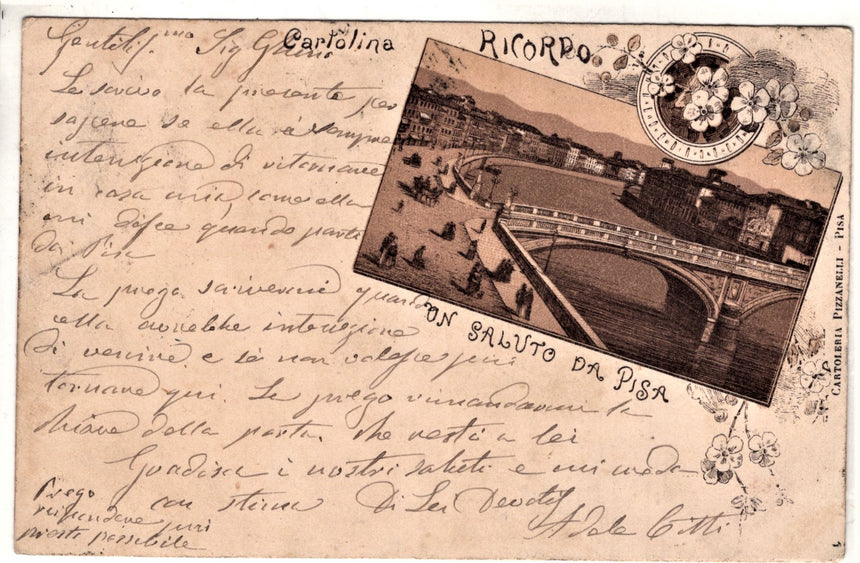 Cartolina RICORDO
Gentilis.mo Sig
Le scrivo la presente per
sapere se ella è sempre
intenzione di ritornare
in casa mia, come ella
mi disse quando partì
da Pisa
La prego scrivermi quando
ella avrebbe intenzione
di venire e se non volesse più
tornare qui. Le prego rimandarmi la
chiave della porta che restì a lei
Gradisca i nostri saluti e mi creda
con stima Di Lei Devot
Adele Citti
Prego
rispondere più
presto possibile
UN SALUTO DA PISA
CARTOLERIA PIZZANELLI - PISA